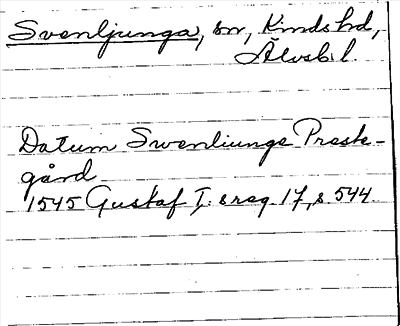 Svenljunga, sn, Kinds hd,
Älvsb. l.
Datum Swenliunge Preste-
gård
1545 Gustaf I:s reg. 17, s. 544.